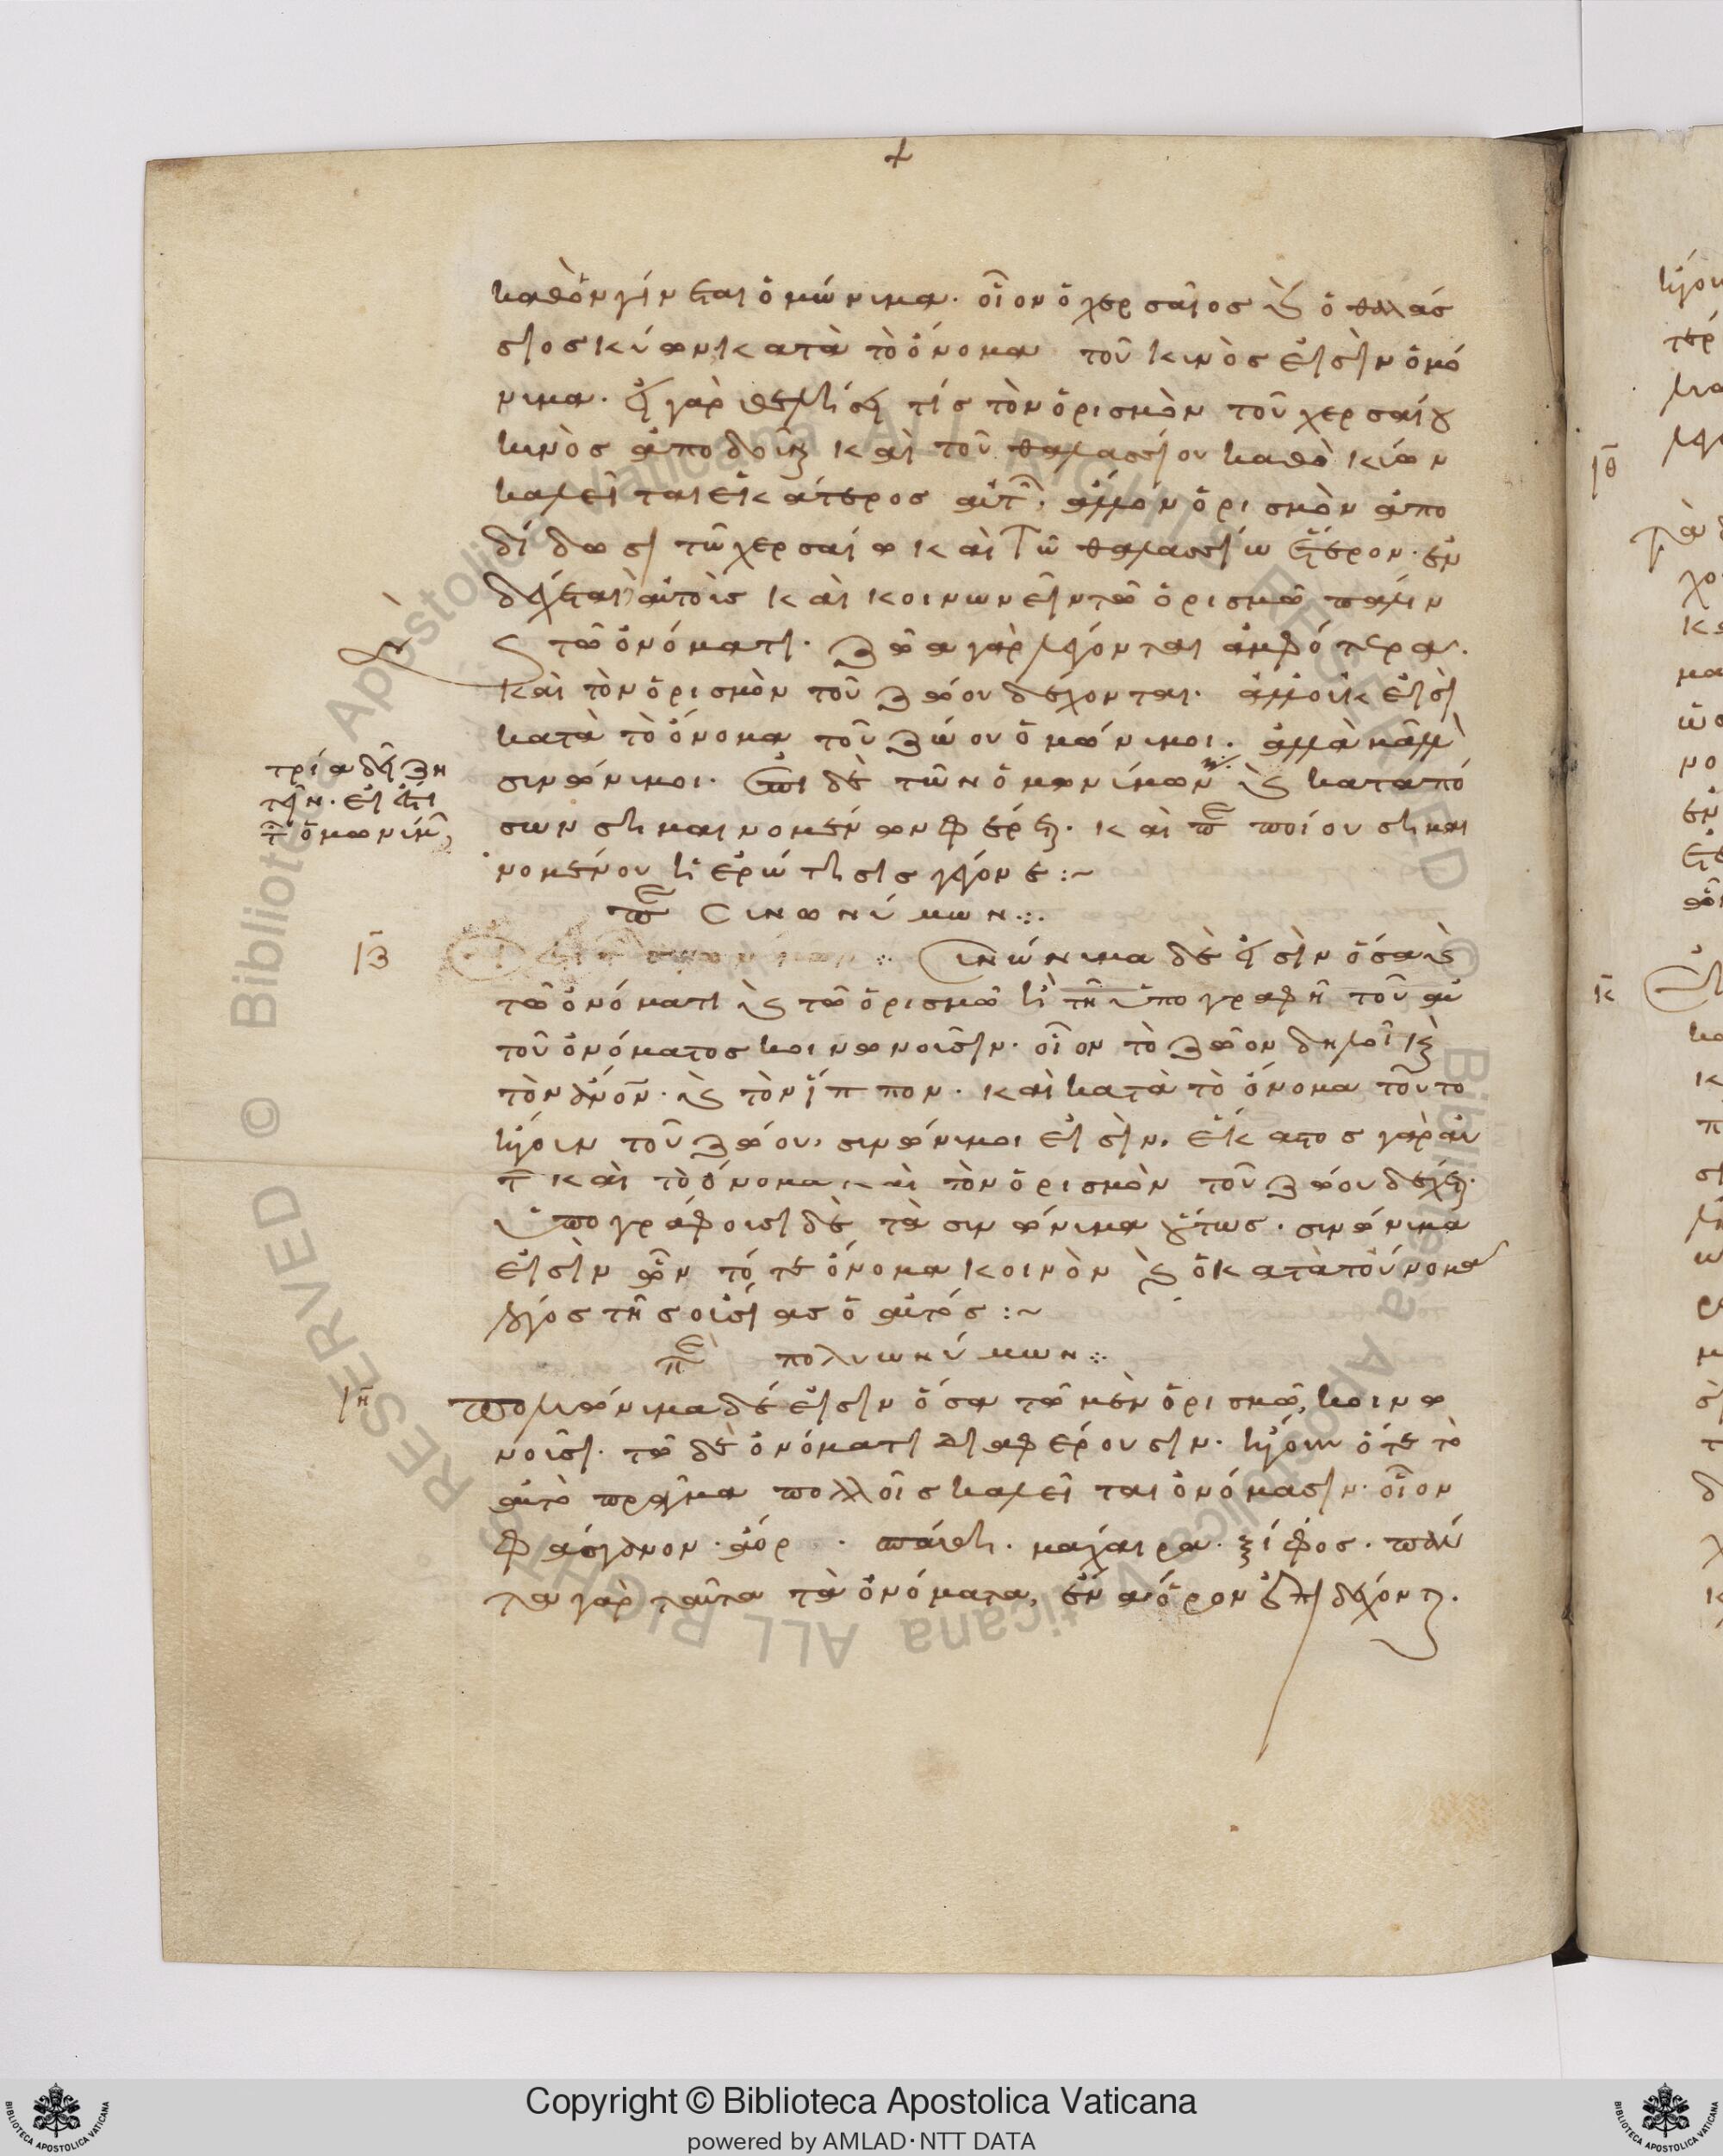 καθὸν γίνεται ὁμώνιμα. οἷον ὁ χερσαῖος καὶ ὁ θαλάσ
σιος κύων κατὰ τὸ ὄνομα τοῦ κινὸς εἰσὶν ὁμό
νιμα. εἰ γὰρ θελήσει τίς τὸν ὁρισμὸν τοῦ χερσαίου
κινὸς ἀποδοῦναι καὶ τοῦ θαλασσίου καθὸ κύων
καλεῖται ἑκάτερος αὐτῶν, ἄλλον ὁρισμὸν ἀπο
δίδωσι τῶ χερσαίω καὶ τῶ θαλασσίω ἕτερον. ἐν
δέχεται αὐτοῖς καὶ κοινωνεῖν τῶ ὁρισμῶ πάλιν
καὶ τῶ ὀνόματι. ζῶα γὰρ λέγονται ἀμφότερα.
καὶ τὸν ὁρισμὸν τοῦ ζώου δέχονται. ἀλλ' οὐκ εἰσὶ
κατὰ τὸ ὄνομα τοῦ ζώου ὁμώνιμοι. ἀλλὰ μᾶλλον
σινώνιμοι. ἐπὶ δὲ τῶν ὁμωνίμων καὶ κατὰ πό
σων σημαινομένων φέρεται. καὶ περὶ ποίου σημαι
νομένου ἡ ἐρώτησις γέγονε :~
τρία δεῖ ζη
τεῖν. εἰ ἔστι
τῶν ὁμωνίμων
περὶ Σινωνύμων
ιζ
Σινώνιμα δέ εἰσιν ὅσα καὶ
τῶ ὀνόματι καὶ τῶ ὁρισμῶ ἢ τῆ ὑπογραφῆ τοῦ αὐ
τοῦ ὀνόματος κοινωνοῦσιν. οἷον τὸ ζῶον δηλοῖ καὶ
τὸν ἄνον. καὶ τὸν ἵππον. καὶ κατὰ τὸ ὄνομα τοῦτο
ἤγουν τοῦ ζώου, σινώνιμοι εἰσὶν. ἕκαστος γὰρ αὐ
τῶν καὶ τὸ ὄνομα καὶ τὸν ὁρισμὸν τοῦ ζώου δέχεται.
ὑπογράφουσι δὲ τὰ σινώνιμα οὕτως. σινώνιμα
εἰσὶν ὧν τό τε ὄνομα κοινὸν καὶ ὁ κατὰ τοὔνομα
λόγος τῆς οὐσίας ὁ αὐτός :~
περὶ πολυωνύμων
ιη
Πολυώνιμα δέ εἰσιν ὅσα τῶ μὲν ὁρισμῶ, κοινω
νοῦσι. τῶ δὲ ὀνόματι διαφέρουσιν. ἤγουν ὅτε τὸ
αὐτὸ πρᾶγμα πολλοῖς καλεῖται ὀνόμασιν. οἷον
φάσγανον. ἄορ. σπάθη. μάχαιρα. ξίφος. πάν
τα γὰρ ταῦτα τὰ ὀνόματα, ἕνα ὅρον ἐπιδέχονται.
ιθ
κ